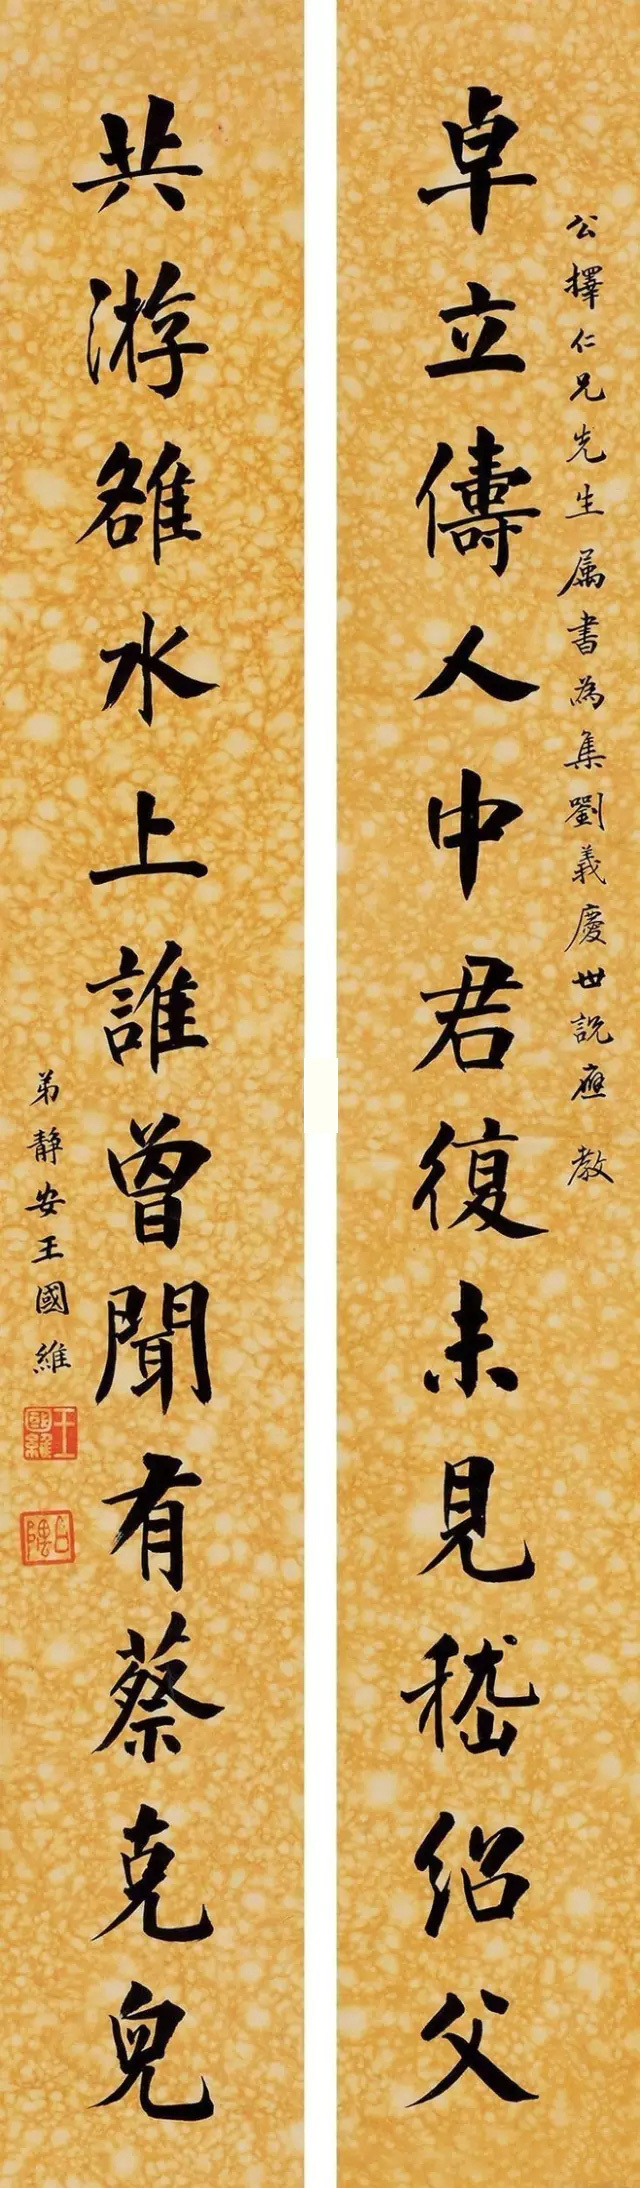 公擇仁兄先生属書為集劉義慶世說應教
卓立儔人中君復未見嵇绍父
共游雒水上誰曾聞有蔡克兒
弟靜安王國維
王國維